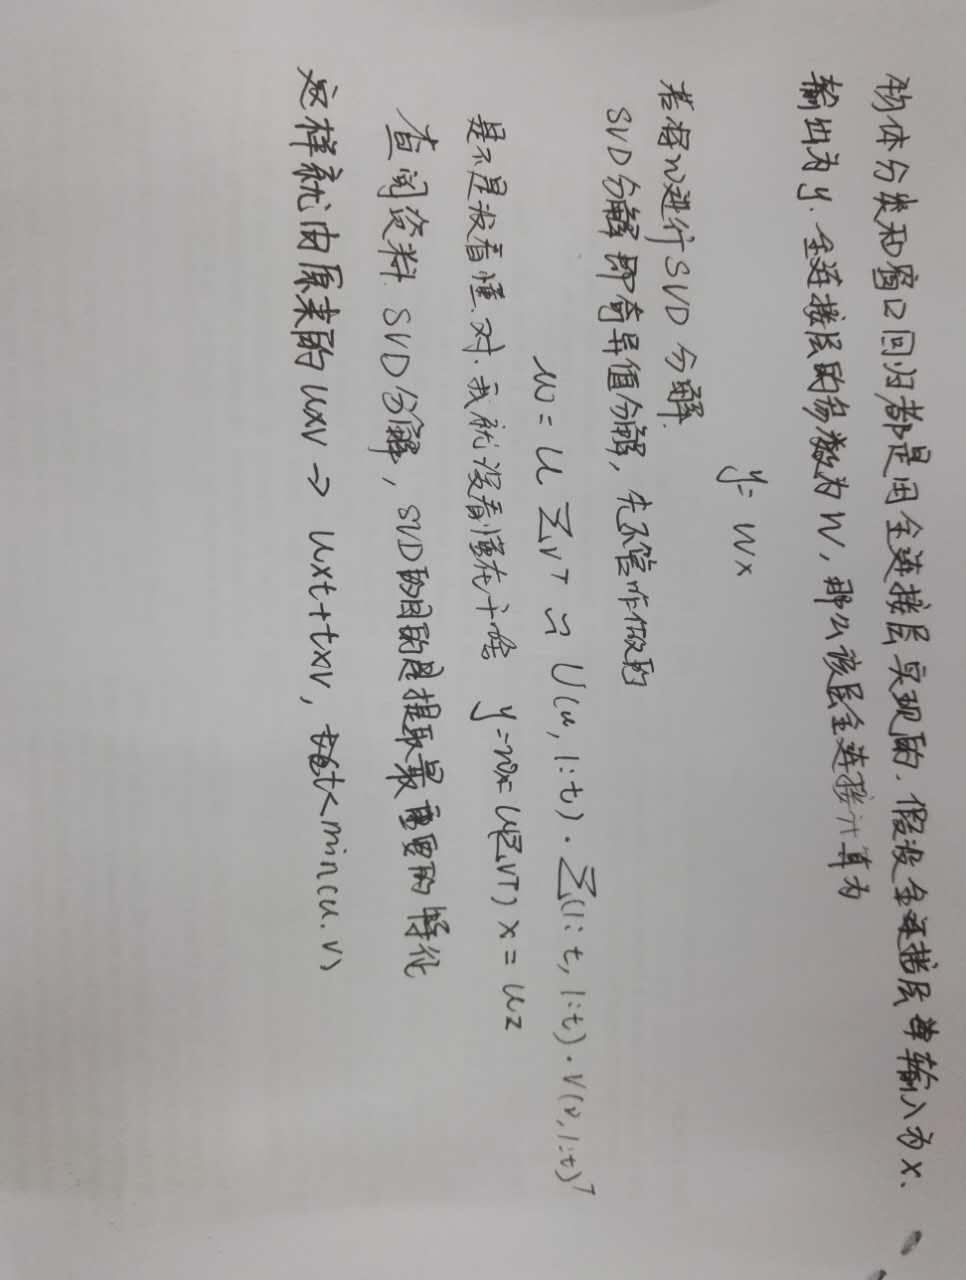 物体分类和窗口回归都是用全连接层实现的.假设全连接层单输入为x.
输出为y.全连接层的参数为W,那么该层全连接计算为
y=Wx
若将w进行SVD分解.
SVD分解即奇异值分解,先不管咋做的
w=u∑vT≈U(u,1:t)·∑(1:t,1:t)·V(v,1:t)T
是不是没看懂.对.我就没看懂在干啥 y=wx=u(∑vT)x=uz
查阅资料.SVD分解,SVD的目的是提取最重要的特征
这样就由原来的uxv→uxt+txv,t<min(u.v)